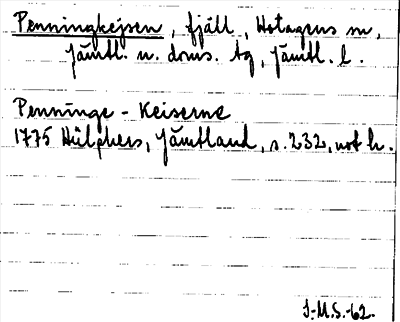 Penningkejsen, fjäll, Hotagens sn,
Jämtl. n. doms. tg, Jämtl. l.
Penninge-Keiserne
1775 Hülphers, Jämtland, s. 232, not h.
J-M.S.-62.